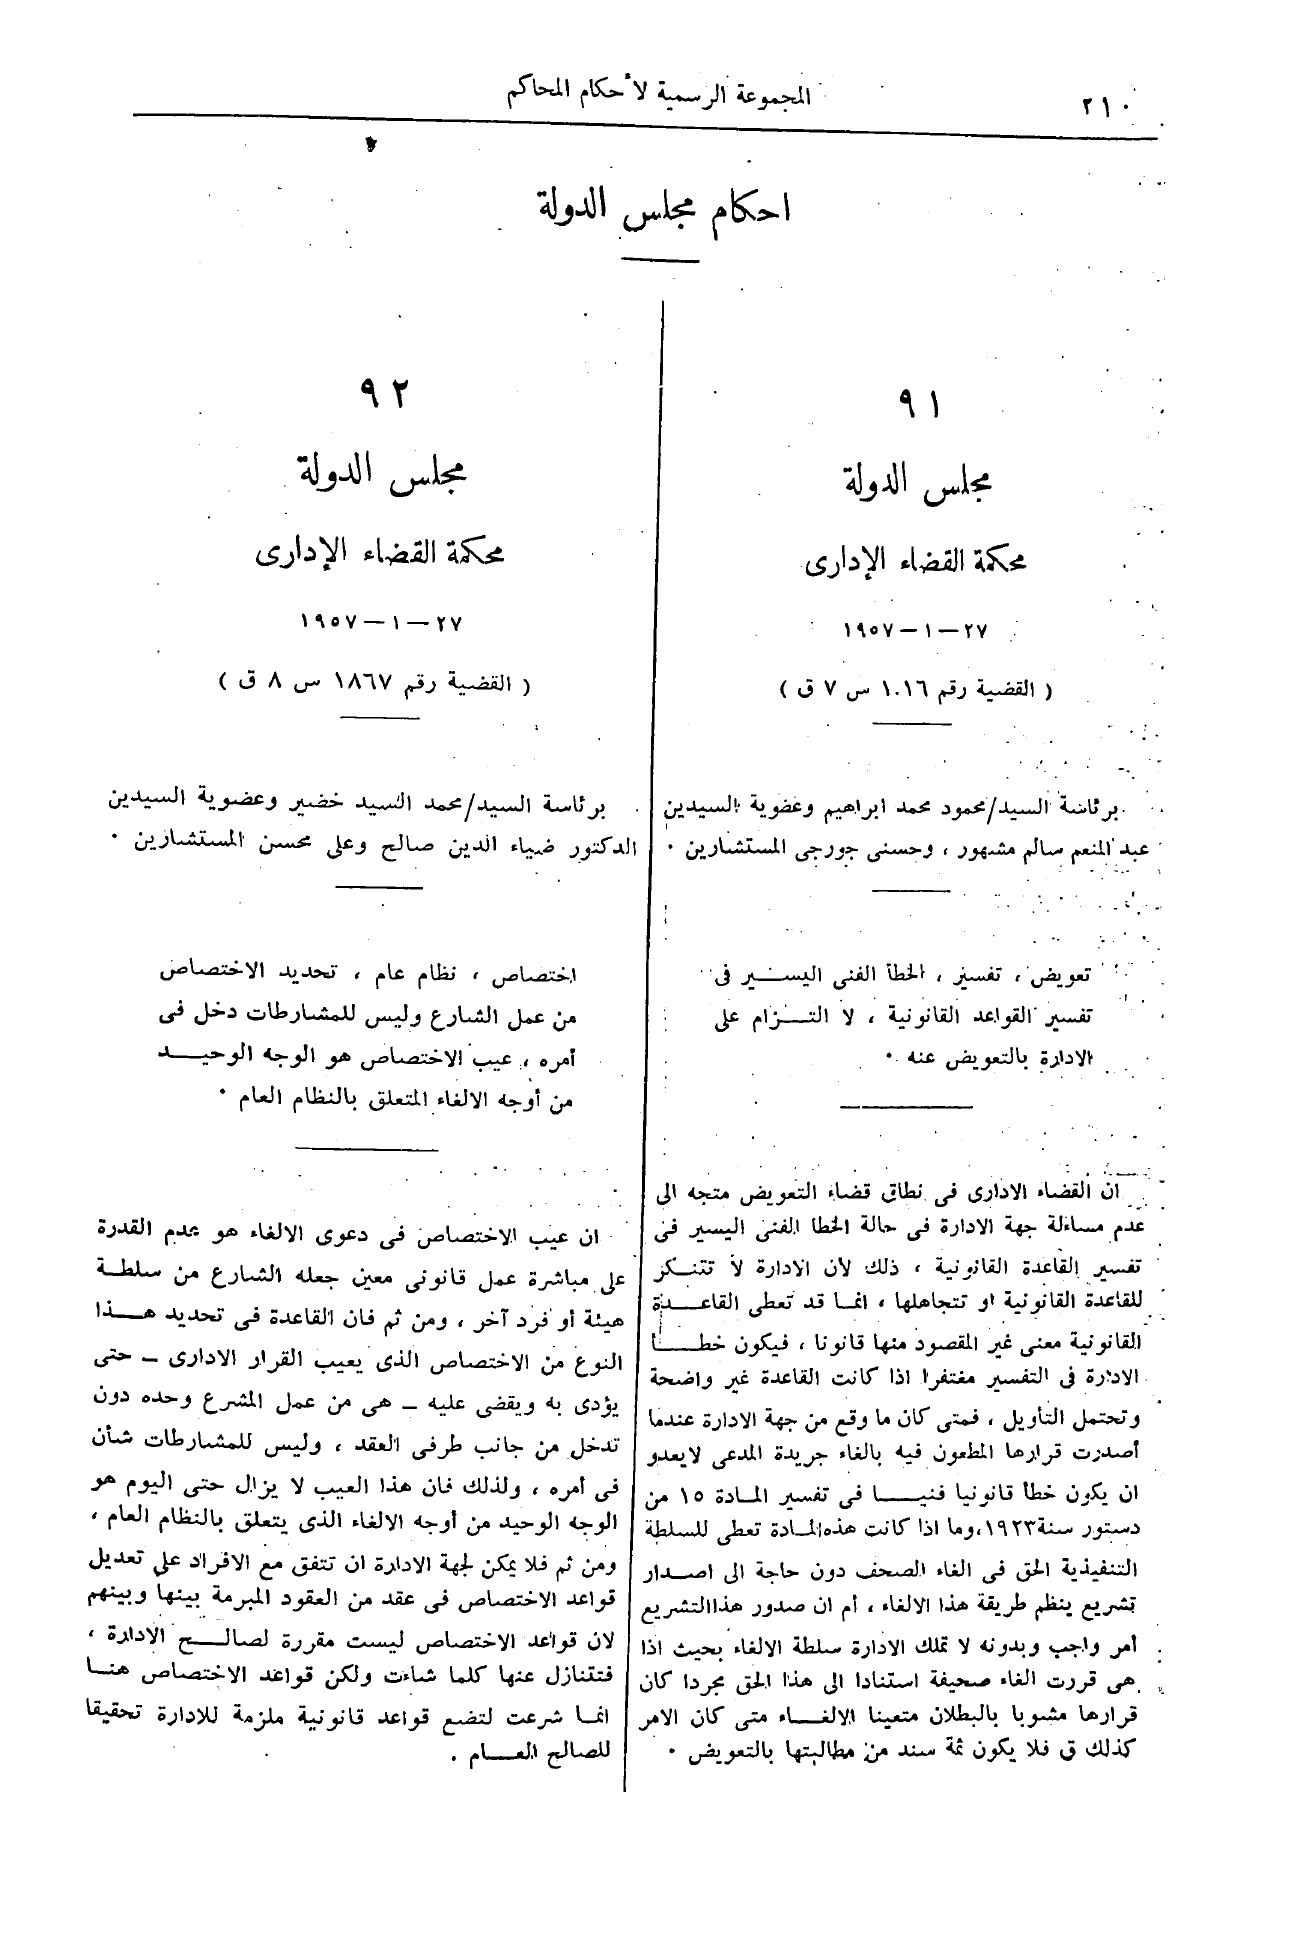 ٢١٠
المجموعة الرسمية لأحكام المحاكم
احكام مجلس الدولة
٩١
مجلس الدولة
محكمة القضاء الإدارى
٢٧ – ١ – ١٩٥٧
( القضية رقم ١٠١٦ س ٧ ق )
برئاسة السيد/محمود محمد ابراهيم وعضوية السيدين
عبد المنعم سالم مشهور ، وحسنى جورجى المستشارين ٠
تعويض ، تفسير ، الخطأ الفنى اليسير فى
تفسير القواعد القانونية ، لا التزام على
الادارة بالتعويض عنه ٠
ان القضاء الادارى فى نطاق قضاء التعويض متجه الى
عدم مساءلة جهة الادارة فى حالة الخطا الفنى اليسير فى
تفسير القاعدة القانونية ، ذلك لأن الادارة لا تتنكر
للقاعدة القانونية او تتجاهلها ، انما قد تعطى القاعدة
القانونية معنى غير المقصود منها قانونا ، فيكون خطا
الادارة فى التفسير مغتفرا اذا كانت القاعدة غير واضحة
وتحتمل التأويل ، فمتى كان ما وقع من جهة الادارة عندما
أصدرت قرارها المطعون فيه بالغاء جريدة المدعى لايعدو
ان يكون خطأ قانونيا فنيا فى تفسير المادة ١٥ من
دستور سنة ١٩٢٣،وما اذا كانت هذه المادة تعطى للسلطة
التنفيذية الحق فى الغاء الصحف دون حاجة الى اصدار
تشريع ينظم طريقة هذا الالغاء ، أم ان صدور هذا التشريع
أمر واجب وبدونه لا تملك الادارة سلطة الالغاء بحيث اذا
هى قررت الغاء صحيفة استنادا الى هذا الحق مجردا كان
قرارها مشوبا بالبطلان متعينا الالغاء متى كان الامر
كذلك ق فلا يكون ثمة سند من مطالبتها بالتعويض ٠
٩٢
مجلس الدولة
محكمة القضاء الإدارى
٢٧ – ١ – ١٩٥٧
( القضية رقم ١٨٦٧ س ٨ ق )
برئاسة السيد/محمد السيد خضير وعضوية السيدين
الدكتور ضياء الدين صالح وعلى محسن المستشارين ٠
اختصاص ، نظام عام ، تحديد الاختصاص
من عمل الشارع وليس للمشارطات دخل فى
أمره ، عيب الاختصاص هو الوجه الوحيد
من أوجه الالغاء المتعلق بالنظام العام ٠
ان عيب الاختصاص فى دعوى الالغاء هو عدم القدرة
على مباشرة عمل قانونى معين جعله الشارع من سلطة
هيئة أو فرد آخر ، ومن ثم فان القاعدة فى تحديد هذا
النوع من الاختصاص الذى يعيب القرار الادارى – حتى
يؤدى به ويقضى عليه – هى من عمل المشرع وحده دون
تدخل من جانب طرفى العقد ، وليس للمشارطات شأن
فى أمره ، ولذلك فان هذا العيب لا يزال حتى اليوم هو
الوجه الوحيد من أوجه الالغاء الذى يتعلق بالنظام العام ،
ومن ثم فلا يمكن لجهة الادارة ان تتفق مع الافراد على تعديل
قواعد الاختصاص فى عقد من العقود المبرمة بينها وبينهم
لان قواعد الاختصاص ليست مقررة لصالح الادارة ،
فتتنازل عنها كلما شاءت ولكن قواعد الاختصاص هنا
انما شرعت لتضع قواعد قانونية ملزمة للادارة تحقيقا
للصالح العام .